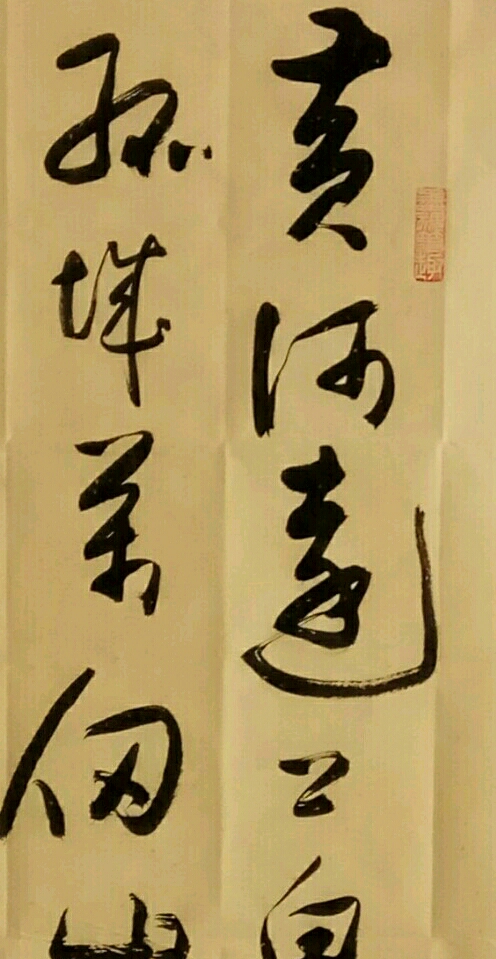 黄河遠上白
孤城萬仞山